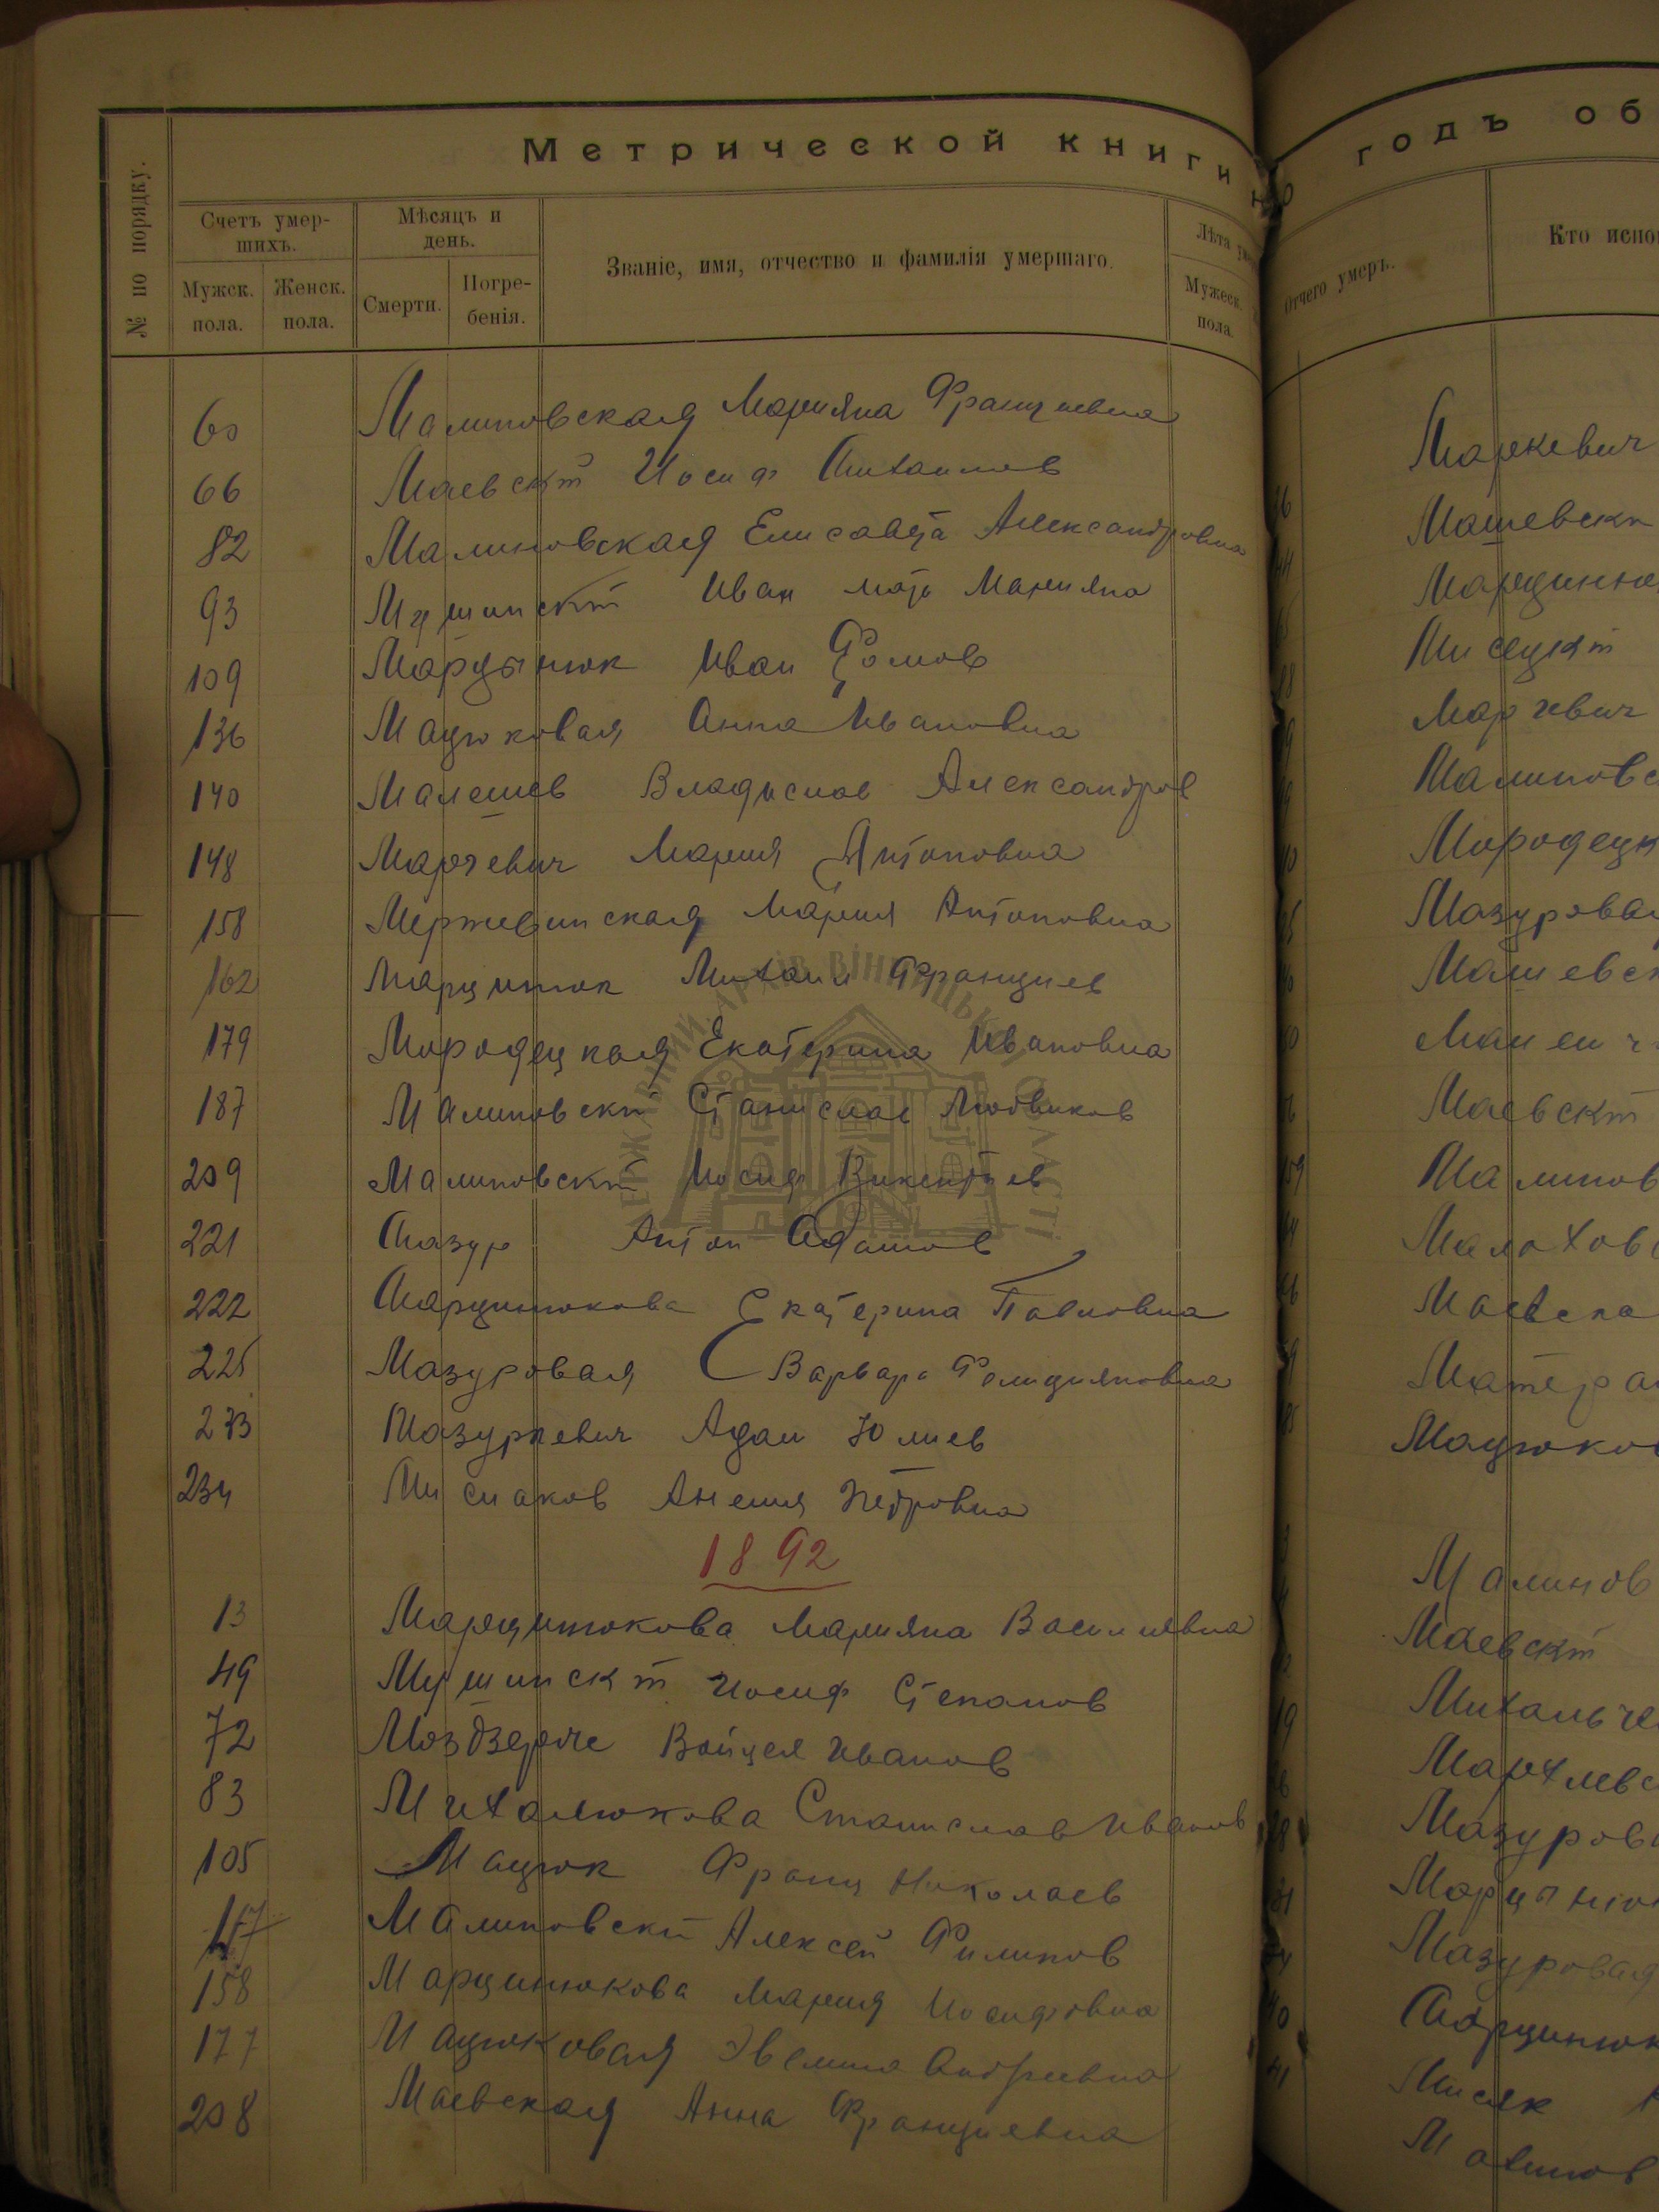 Метрической книги
годъ об
№ по порядку.
Счетъ умер-
шихъ.
Мужск.
пола.
Женск.
пола.
Мѣсяцъ и
день.
Смерти.
Погре-
бенія.
Званіе, имя, отчество и фамилія умершаго.
Лѣта
Мужеск.
пола.
Отчего умеръ.
Кто испо
60 Малиновская Марияна Францисевна
66 Маевскій Иосиф Михаилов
82 Малиновская Елисавета Александровна
93 Мушинскій Иван мать Марияна
109 Марцынюк Иван Фомов
136 Мацюковая Анна Ивановна
140 Малешев Владислав Александров
148 Марчевич Мария Антоновна
158 Мержевинская Мария Антоновна
162 Марцинюк Михаил Францищев
179 Мородецкая Екатерина Ивановна
187 Малиновскій Станислав Людвиков
209 Малиновскій Иосиф Викентьев
221 Мазур Антон Адамов
222 Марцинюкова Екатерина Павловна
225 Мазуровая Варвара Фелицияновна
233 Мазуркевич Адам Юлиев
234 Мисиаков Анеля Петровна
1892
13 Марцинюкова Марияна Василиевна
49 Мушинскій Иосиф Степанов
72 Войцех Иванов
83 Михалюкова Станислав Иванов
105 Мацюк Франц Николаев
117 Малиновскій Алексей Филипов
158 Марцинюкова Мария Иосифовна
177 Мацюковая Эвелина Андреевна
208 Маевская Анна Францевна
Маркевич
Машевски
Марцинюк
Мисецкій
Марчевич
Малиновс
Мородецк
Мазурова
Машевск
Маевскій
Малинов
Малахов
Маевска
Матера
Мацюков
Малинов
Маевскій
Михальче
Мархлевс
Мазуров
Марцыню
Мазуровая
Марцинюк
Мисяк